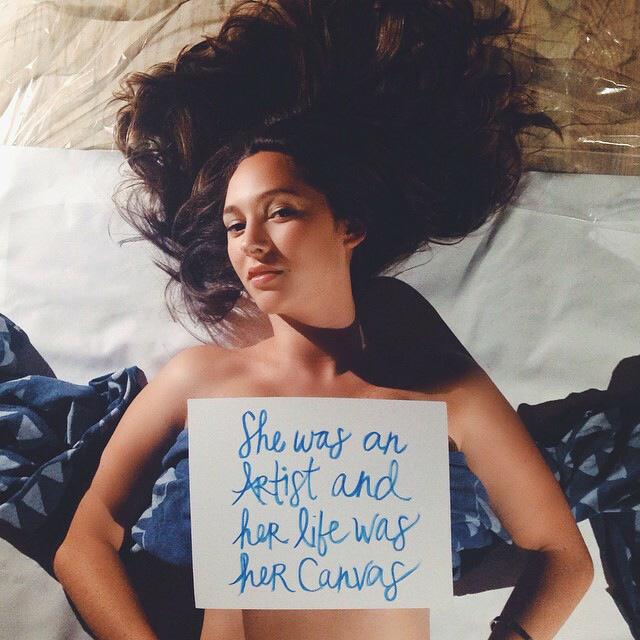 She was an
Artist and
her life was
her Canvas